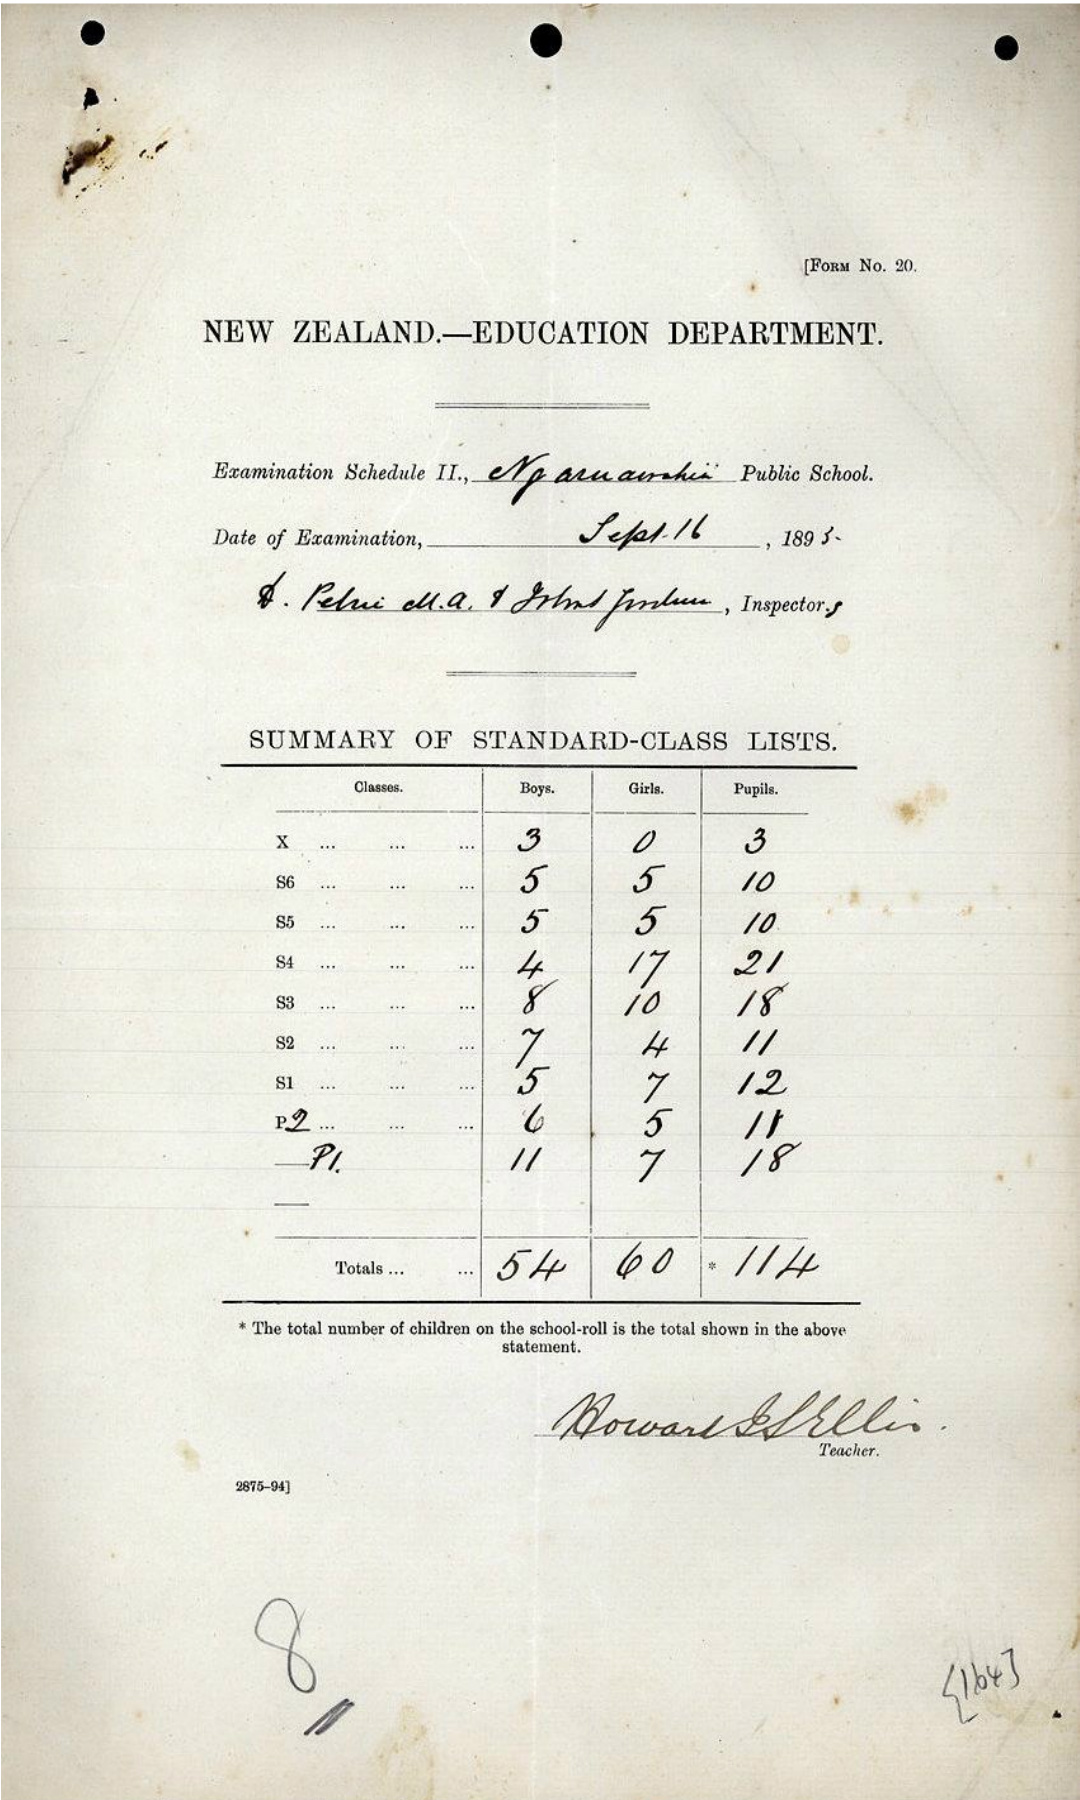 [FORM No. 20.
NEW ZEALAND.—EDUCATION DEPARTMENT.
Examination Schedule II., Public School.
Date of Examination, Sept. 16, 1895.
D. Petrie M.A. & , Inspectors
SUMMARY OF STANDARD-CLASS LISTS.
Classes. Boys. Girls. Pupils.
X ... ... ... 3 0 3
S6 ... ... ... 5 5 10
S5 ... ... ... 5 5 10
S4 ... ... ... 4 17 21
S3 ... ... ... 8 10 18
S2 ... ... ... 7 4 11
S1 ... ... ... 5 7 12
P2 ... ... ... 6 5 11
—P1. 11 7 18
—
Totals ... ... 54 60 * 114
* The total number of children on the school-roll is the total shown in the above
statement.
Howard Ellis.
Teacher.
2875–94]
8
[164]